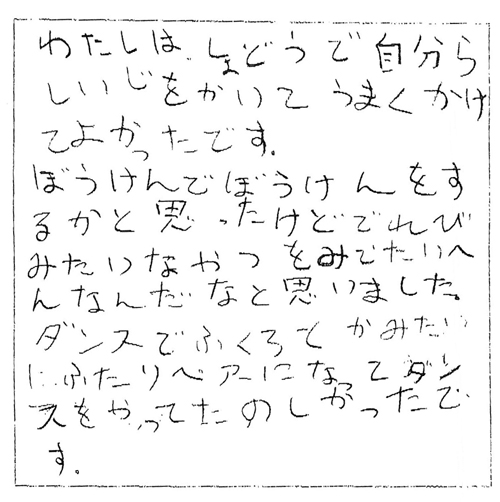 わたしは、しょどうで自分ら
しいじをかいてうまくかけ
てよかったです。
ぼうけんでぼうけんをす
るかと思ったけどでれび
みたいなやつをみでたいへ
んなんだなと思いました。
ダンスでふくろてかみたい
にふたりペアーになってダン
スをやってたのしかったで
す。